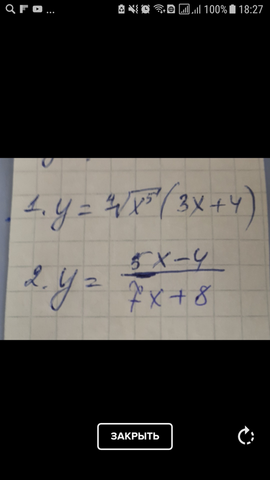 100% 18:27
1. y = ⁴√x⁵ (3x+4)
2. y = (5x-4)/(7x+8)
ЗАКРЫТЬ